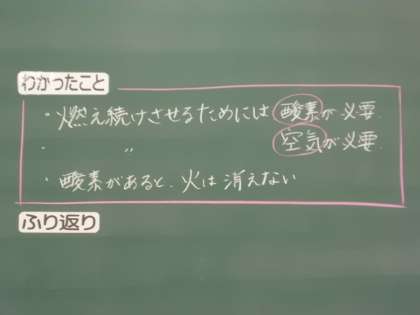 わかったこと
・燃え続けさせるためには酸素が必要.
・　　〃　　空気が必要.
・酸素があると、火は消えない
ふり返り